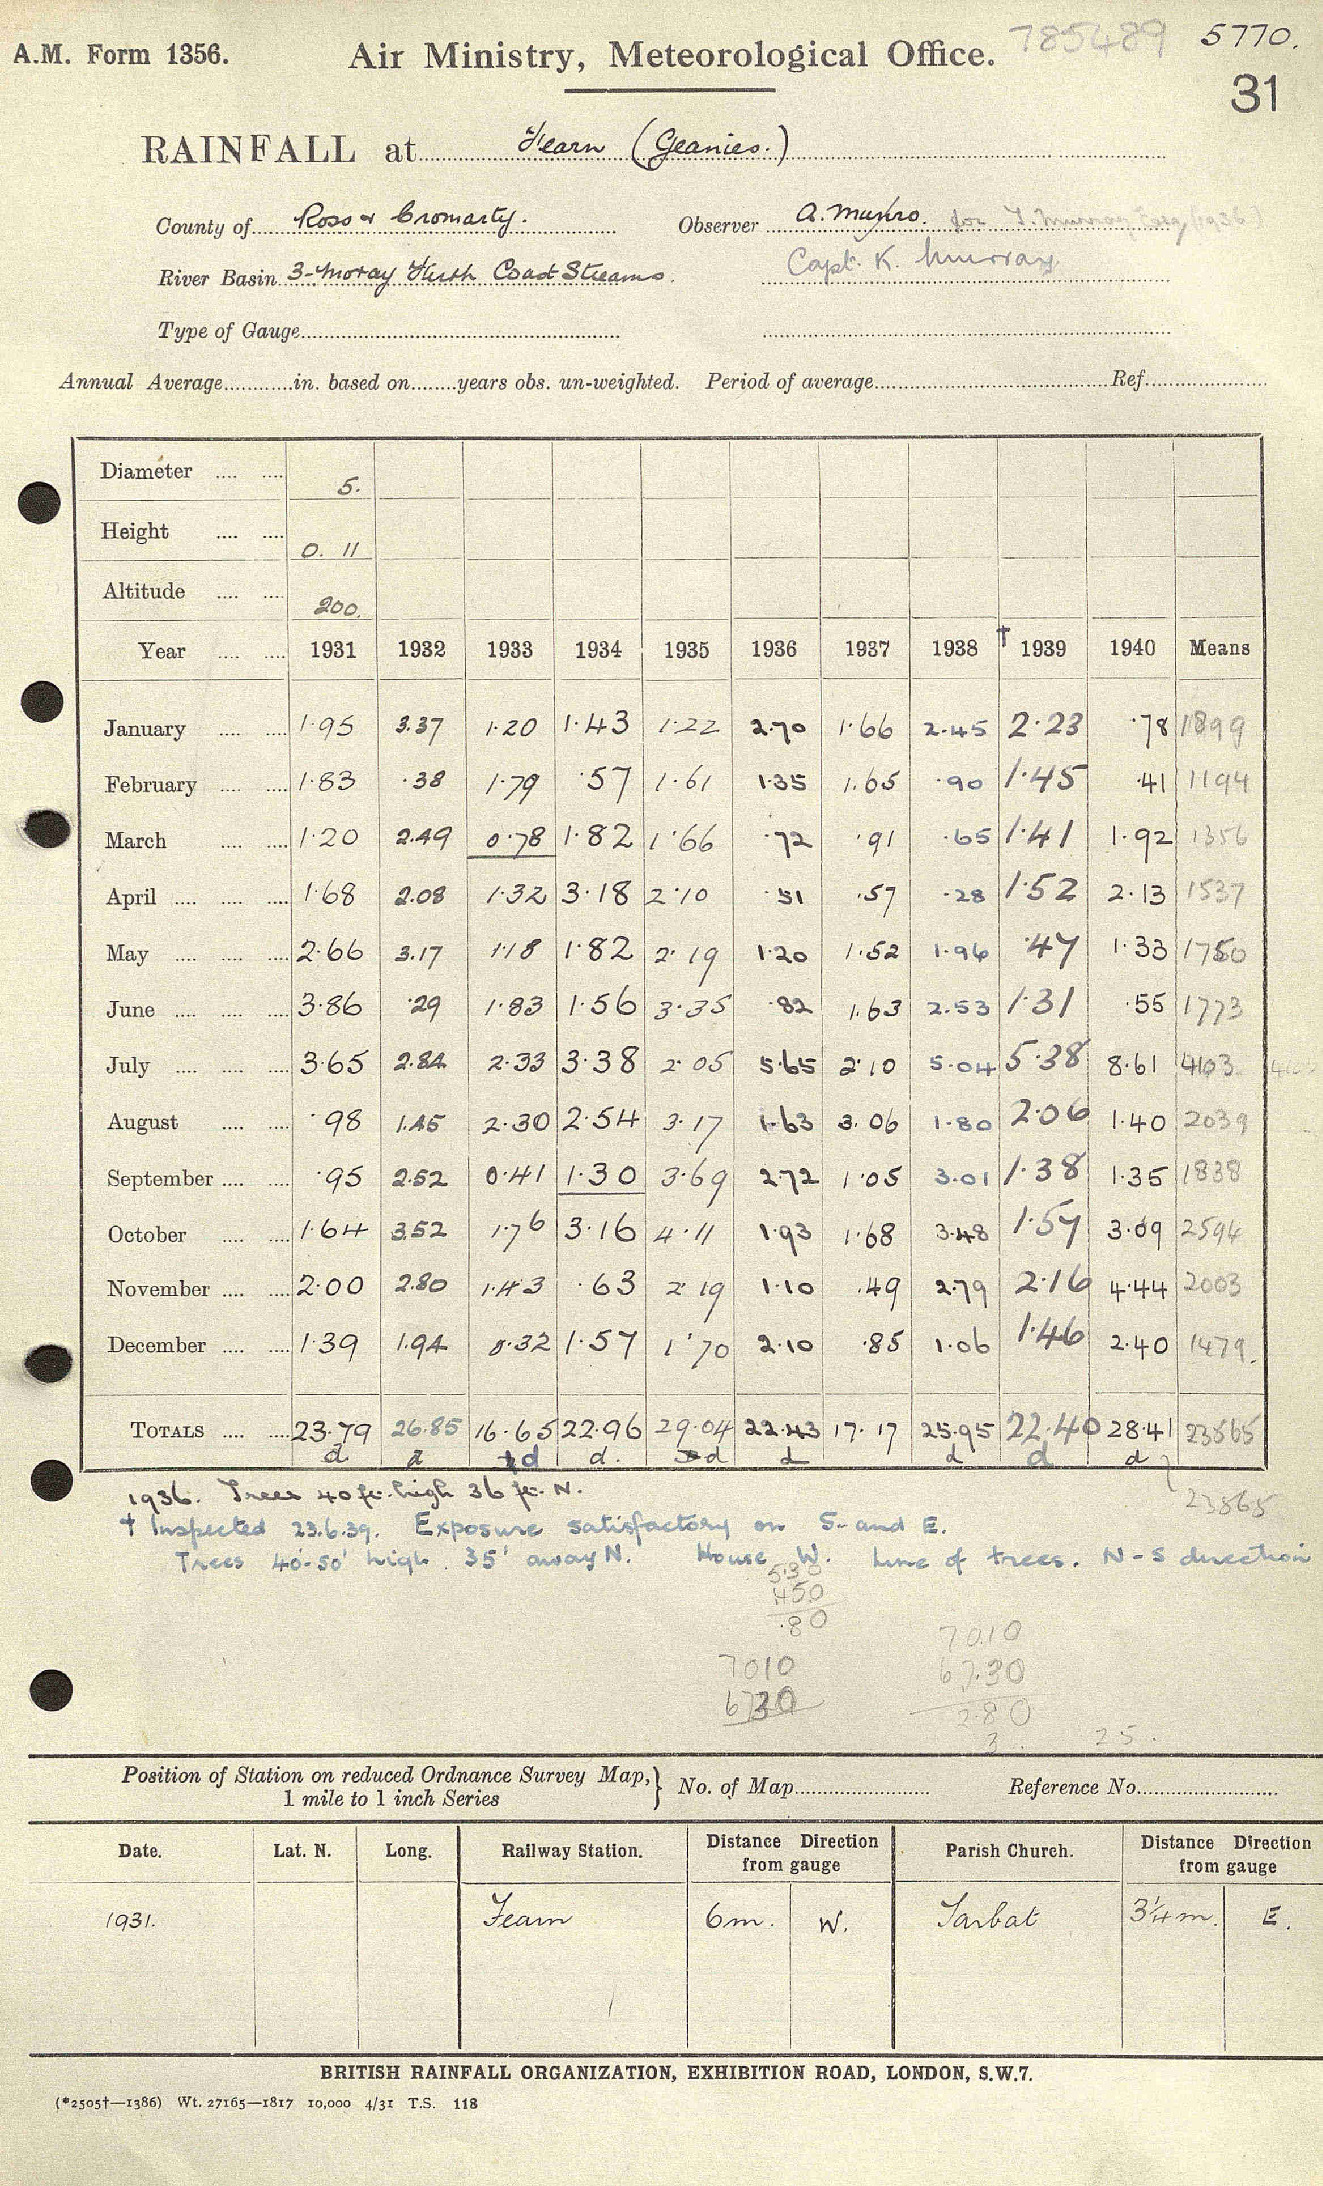 A.M. Form 1356. Air Ministry, Meteorological Office. 785489 5770.
31
RAINFALL at Fearn (Geanies.)
County of Ross & Cromarty. Observer A. Munro. for T. Murray Esq (1936)
River Basin 3-Moray Firth Coast Streams. Capt. K. Murray
Type of Gauge
Annual Average in. based on years obs. un-weighted. Period of average Ref.
Diameter 5.
Height 0. 11
Altitude 200.
Year 1931 1932 1933 1934 1935 1936 1937 1938 † 1939 1940 Means
January 1.95 3.37 1.20 1.43 1.22 2.70 1.66 2.45 2.23 .78 1899
February 1.83 .38 1.79 .57 1.61 1.35 1.65 .90 1.45 .41 1194
March 1.20 2.49 0.78 1.82 1.66 .72 .91 .65 1.41 1.92 1356
April 1.68 2.08 1.32 3.18 2.10 .51 .57 .28 1.52 2.13 1537
May 2.66 3.17 1.18 1.82 2.19 1.20 1.52 1.96 .47 1.33 1750
June 3.86 .29 1.83 1.56 3.35 .82 1.63 2.53 1.31 .55 1773
July 3.65 2.84 2.33 3.38 2.05 5.65 2.10 5.04 5.38 8.61 4103
August .98 1.45 2.30 2.54 3.17 1.63 3.06 1.80 2.06 1.40 2039
September .95 2.52 0.41 1.30 3.69 2.72 1.05 3.01 1.38 1.35 1838
October 1.64 3.52 1.76 3.16 4.11 1.93 1.68 3.48 1.57 3.09 2594
November 2.00 2.80 1.43 .63 2.19 1.10 .49 2.79 2.16 4.44 2003
December 1.39 1.94 0.32 1.57 1.70 2.10 .85 1.06 1.46 2.40 1479.
TOTALS 23.79 26.85 16.65 22.96 29.04 22.43 17.17 25.95 22.40 28.41 23565
d d d d. d d d d d
23565
1936. Trees 40 ft. high 36 ft. N.
† Inspected 23.6.39. Exposure satisfactory on S. and E.
Trees 40'-50' high. 35' away N. House W. Line of trees. N-S direction
5.30
450
.80
7010 70.10
6730 67.30
2.80
3. 25.
Position of Station on reduced Ordnance Survey Map,} No. of Map Reference No.
1 mile to 1 inch Series
Date. Lat. N. Long. Railway Station. Distance Direction from gauge Parish Church. Distance Direction from gauge
1931. Fearn 6m. W. Tarbat 3¼ m. E.
BRITISH RAINFALL ORGANIZATION, EXHIBITION ROAD, LONDON, S.W.7.
(*2505†—1386) Wt. 27165—1817 10,000 4/31 T.S. 118